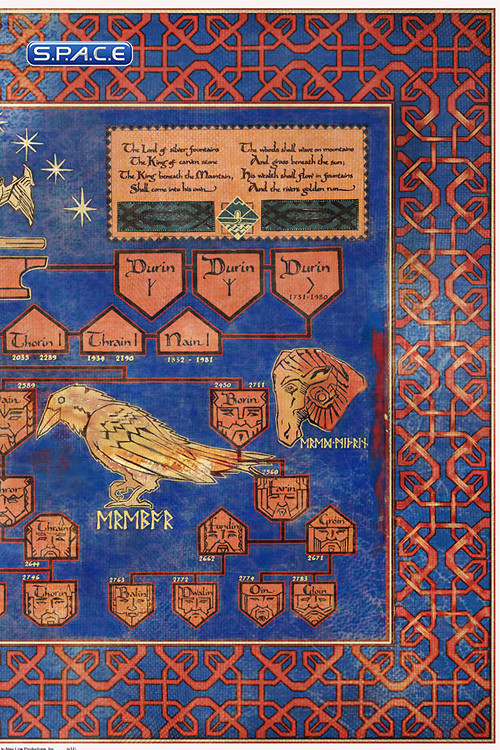 S.P.A.C.E
The Lord of silver fountains
The King of carven stone
The King beneath the Mountain,
Shall come into his own
The woods shall wave on mountains
And grass beneath the sun;
His wealth shall flow in fountains
And the rivers golden run
Durin
ᛉ
Durin
ᛉ
Durin
1731-1980
Thorin I
Thrain I
Nain I
2035 2289
1934 2190
1832 - 1981
2589
2450 2711
Borin
2560
Farin
Thrain
Fundin
Groin
2644
2662
2671
2746
2763
2772
2774
2783
Thorin
Balin
Dwalin
Oin
Gloin